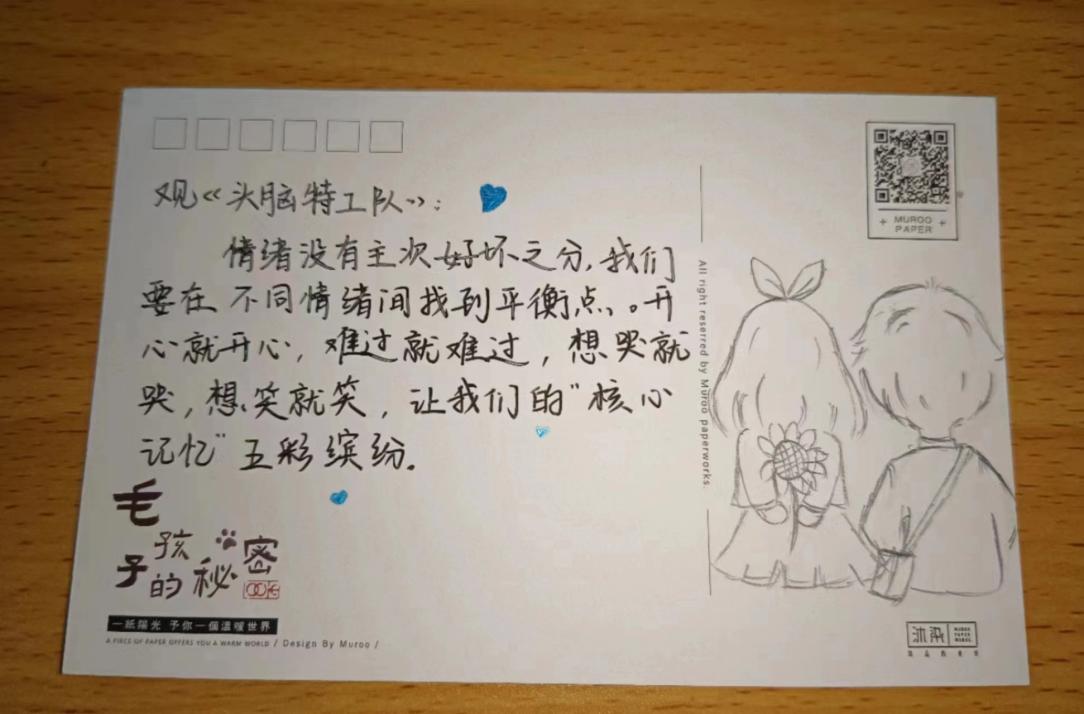 观《头脑特工队》：
情绪没有主次好坏之分，我们
要在不同情绪间找到平衡点。开
心就开心，难过就难过，想哭就
哭，想笑就笑，让我们的“核心
记忆”五彩缤纷。
毛
孩
子的秘密
一紙陽光 予你一個溫暖世界
A PIECE OF PAPER OFFERS YOU A WARM WORLD / Design By Muroo /
MUROO
PAPER
All right reserred by Muroo paperworks.
沐染
MUROO
PAPER
WORKS